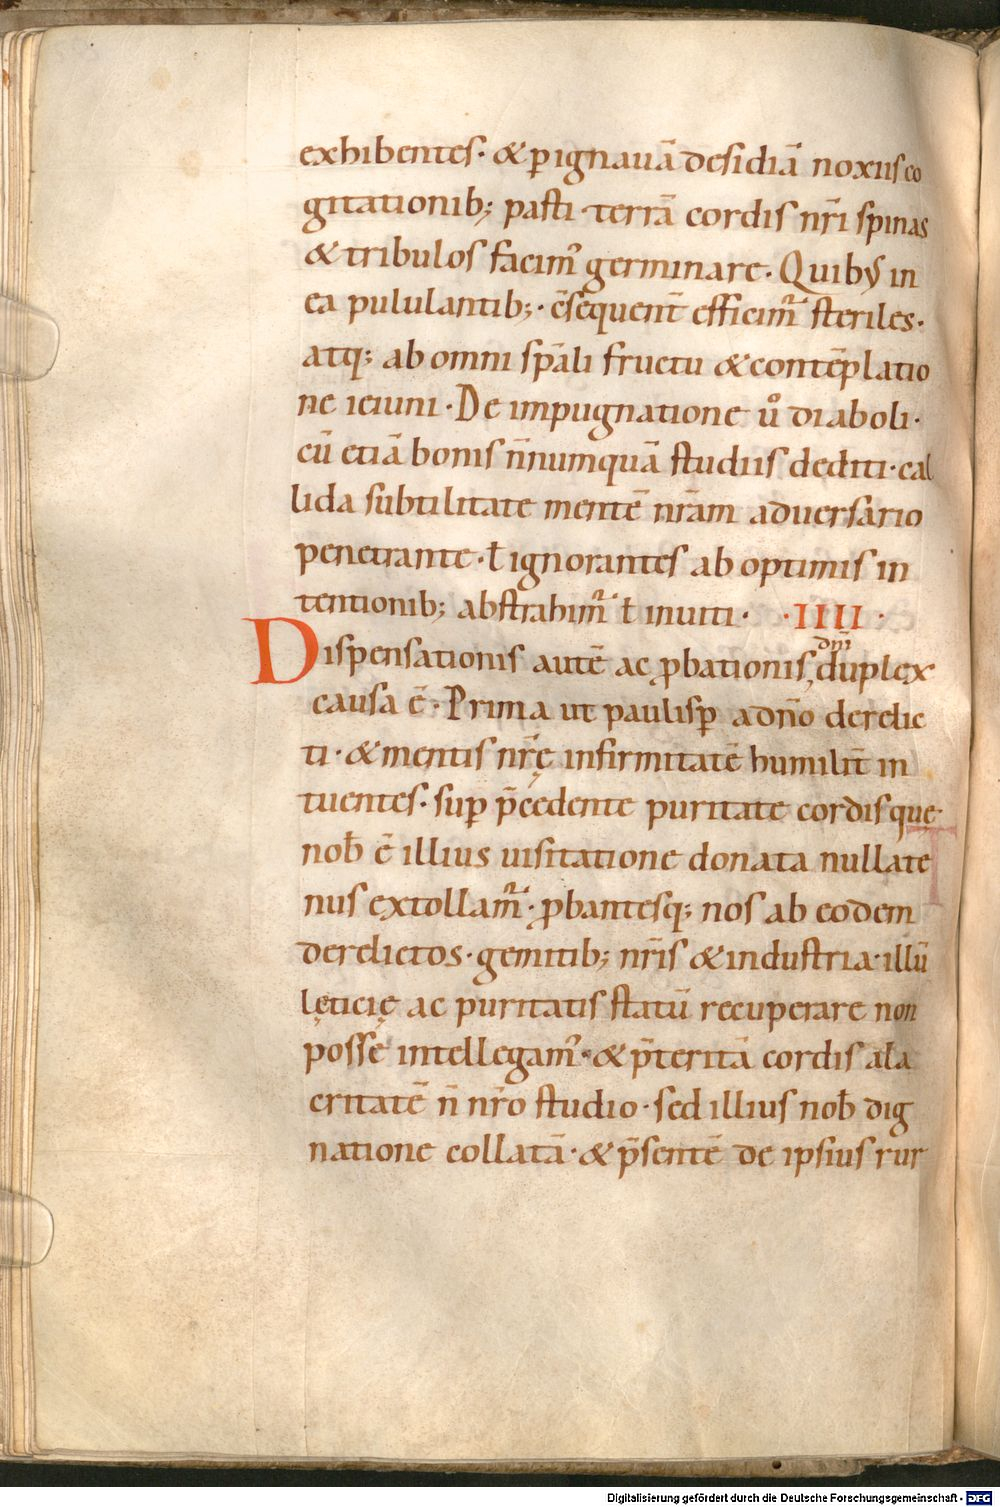 exhibentes· & ꝑ ignauā desidiā noxiis co
gitationib; pasti· terrā cordis nr̄i spinas
& tribulos facim᾽ germinare· Quibus in
ea pululantib;· c̄sequent̄ efficim̄ steriles·
atq; ab omni sp̄ali fructu & contēplatio
ne ieiuni· De impugnatione ů diaboli·
cū etiā bonis n̄numquā studiis dediti· cal
lida subtilitate mentē nr̄am aduersario
penetrante· ł ignorantes ab optimis in
tentionib; abstrahim̄ ł inuiti· ·IIII·
Dispensationis autē ac ꝓbationis, dn̄i duplex
causa ē· Prima ut paulisꝑ a dn̄o derelic
ti· & mentis nr̄ę infirmitatē humilit̄ in
tuentes· suꝑ p̄cedente puritate cordis quę
nob̄ ē illius uisitatione donata nullate
nus extollam̄· ꝓbantesq; nos ab eodem
derelictos· gemitib; nr̄is & industria· illū
lęticię ac puritatis statū recuperare non
posse intellegam᾽· & p̄teritā cordis ala
critatē n̄ nr̄o studio· sed illius nob̄ dig
natione collatā· & p̄sentē de ipsius rur
Digitalisierung gefördert durch die Deutsche Forschungsgemeinschaft - DFG